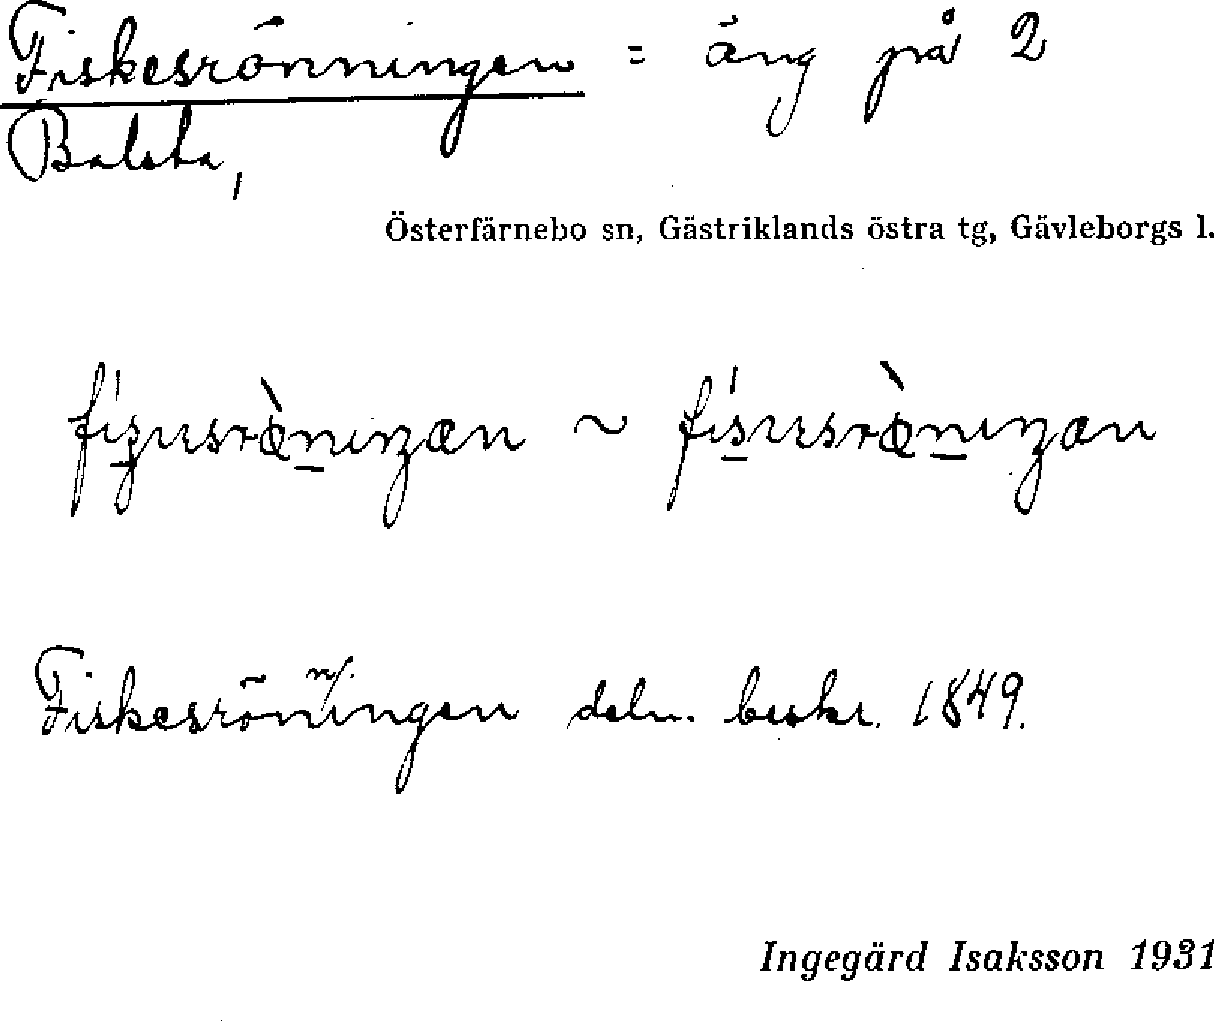 Fiskesrönningen = äng på 2
Balsta,
Österfärnebo sn, Gästriklands östra tg, Gävleborgs l.
Fiskesröningen deln. beskr. 1849.
Ingegärd Isaksson 1931